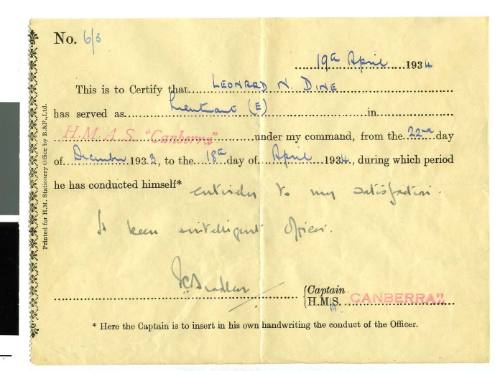 No. 6/6
19th April 1934
This is to Certify that LEONARD N. DINE
has served as Lieutenant (E) in
H.M.A.S. "Canberra" under my command, from the 22nd day
of December 1932, to the 18th day of April 1934, during which period
he has conducted himself* entirely to my satisfaction.
A keen intelligent officer.
Captain
H.M.S. CANBERRA"
* Here the Captain is to insert in his own handwriting the conduct of the Officer.
Printed for H.M. Stationery Office by B.&F., Ltd.